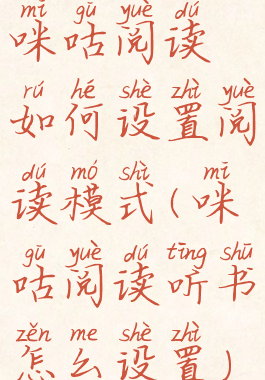 mī gū yuè dú
咪咕阅读
rú hé shè zhì yuè
如何设置阅
dú mó shì mī
读模式(咪
gū yuè dú tīng shū
咕阅读听书
zěn me shè zhì
怎么设置)